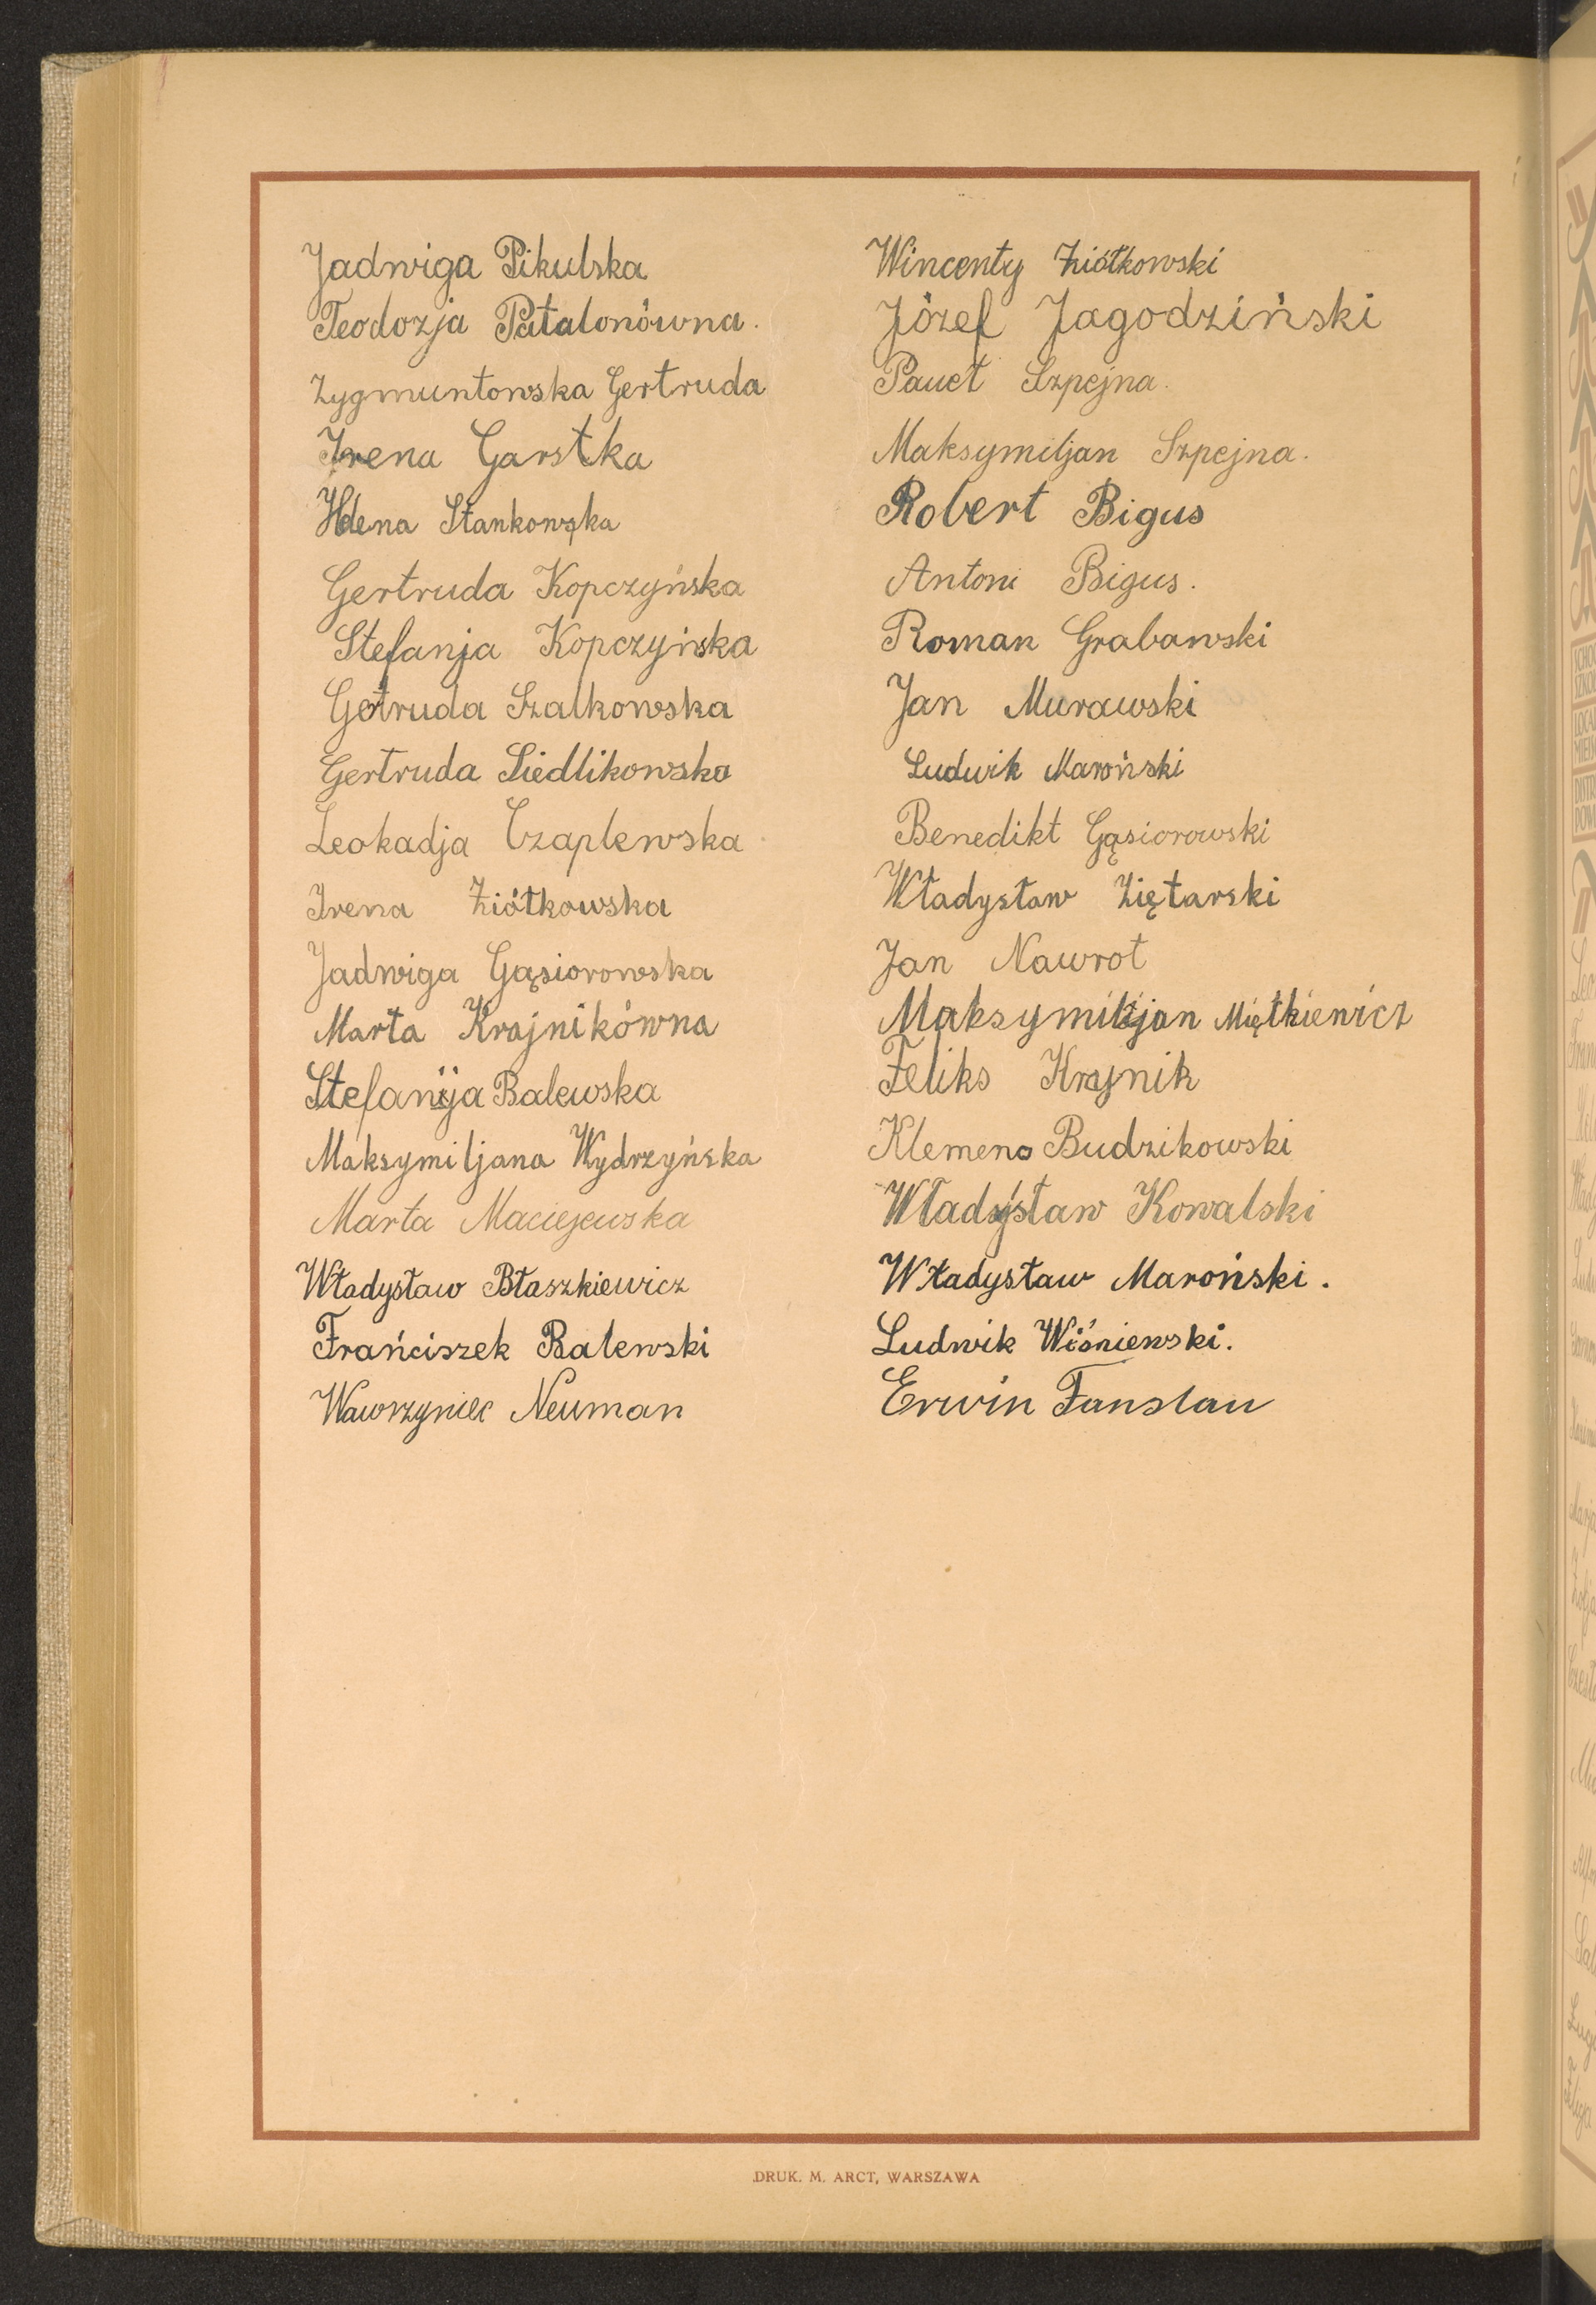 Jadwiga Pikulska
Teodozja Patalonówna.
Zygmuntowska Gertruda
Irena Garstka
Helena Stankowska
Gertruda Kopczyńska
Stefanja Kopczyńska
Getruda Szalkowska
Gertruda Siedlikowska
Leokadja Czaplewska
Irena Ziółkowska
Jadwiga Gąsiorowska
Marta Krajnikówna
Stefanja Balewska
Maksymiljana Wydrzyńska
Marta Maciejewska
Władysław Błaszkiewicz
Frańciszek Balewski
Wawrzyniec Neuman
Wincenty Ziółkowski
Józef Jagodziński
Paweł Szpejna.
Maksymiljan Szpejna.
Robert Bigus
Antoni Bigus.
Roman Grabawski
Jan Murawski
Ludwik Maroński
Benedikt Gąsiorowski
Władysław Ziętarski
Jan Nawrot
Maksymiljan Miętkiewicz
Feliks Krajnik
Klemens Budzikowski
Władysław Kowalski
Władysław Maroński.
Ludwik Wiśniewski.
Erwin Fanslau
DRUK. M. ARCT, WARSZAWA